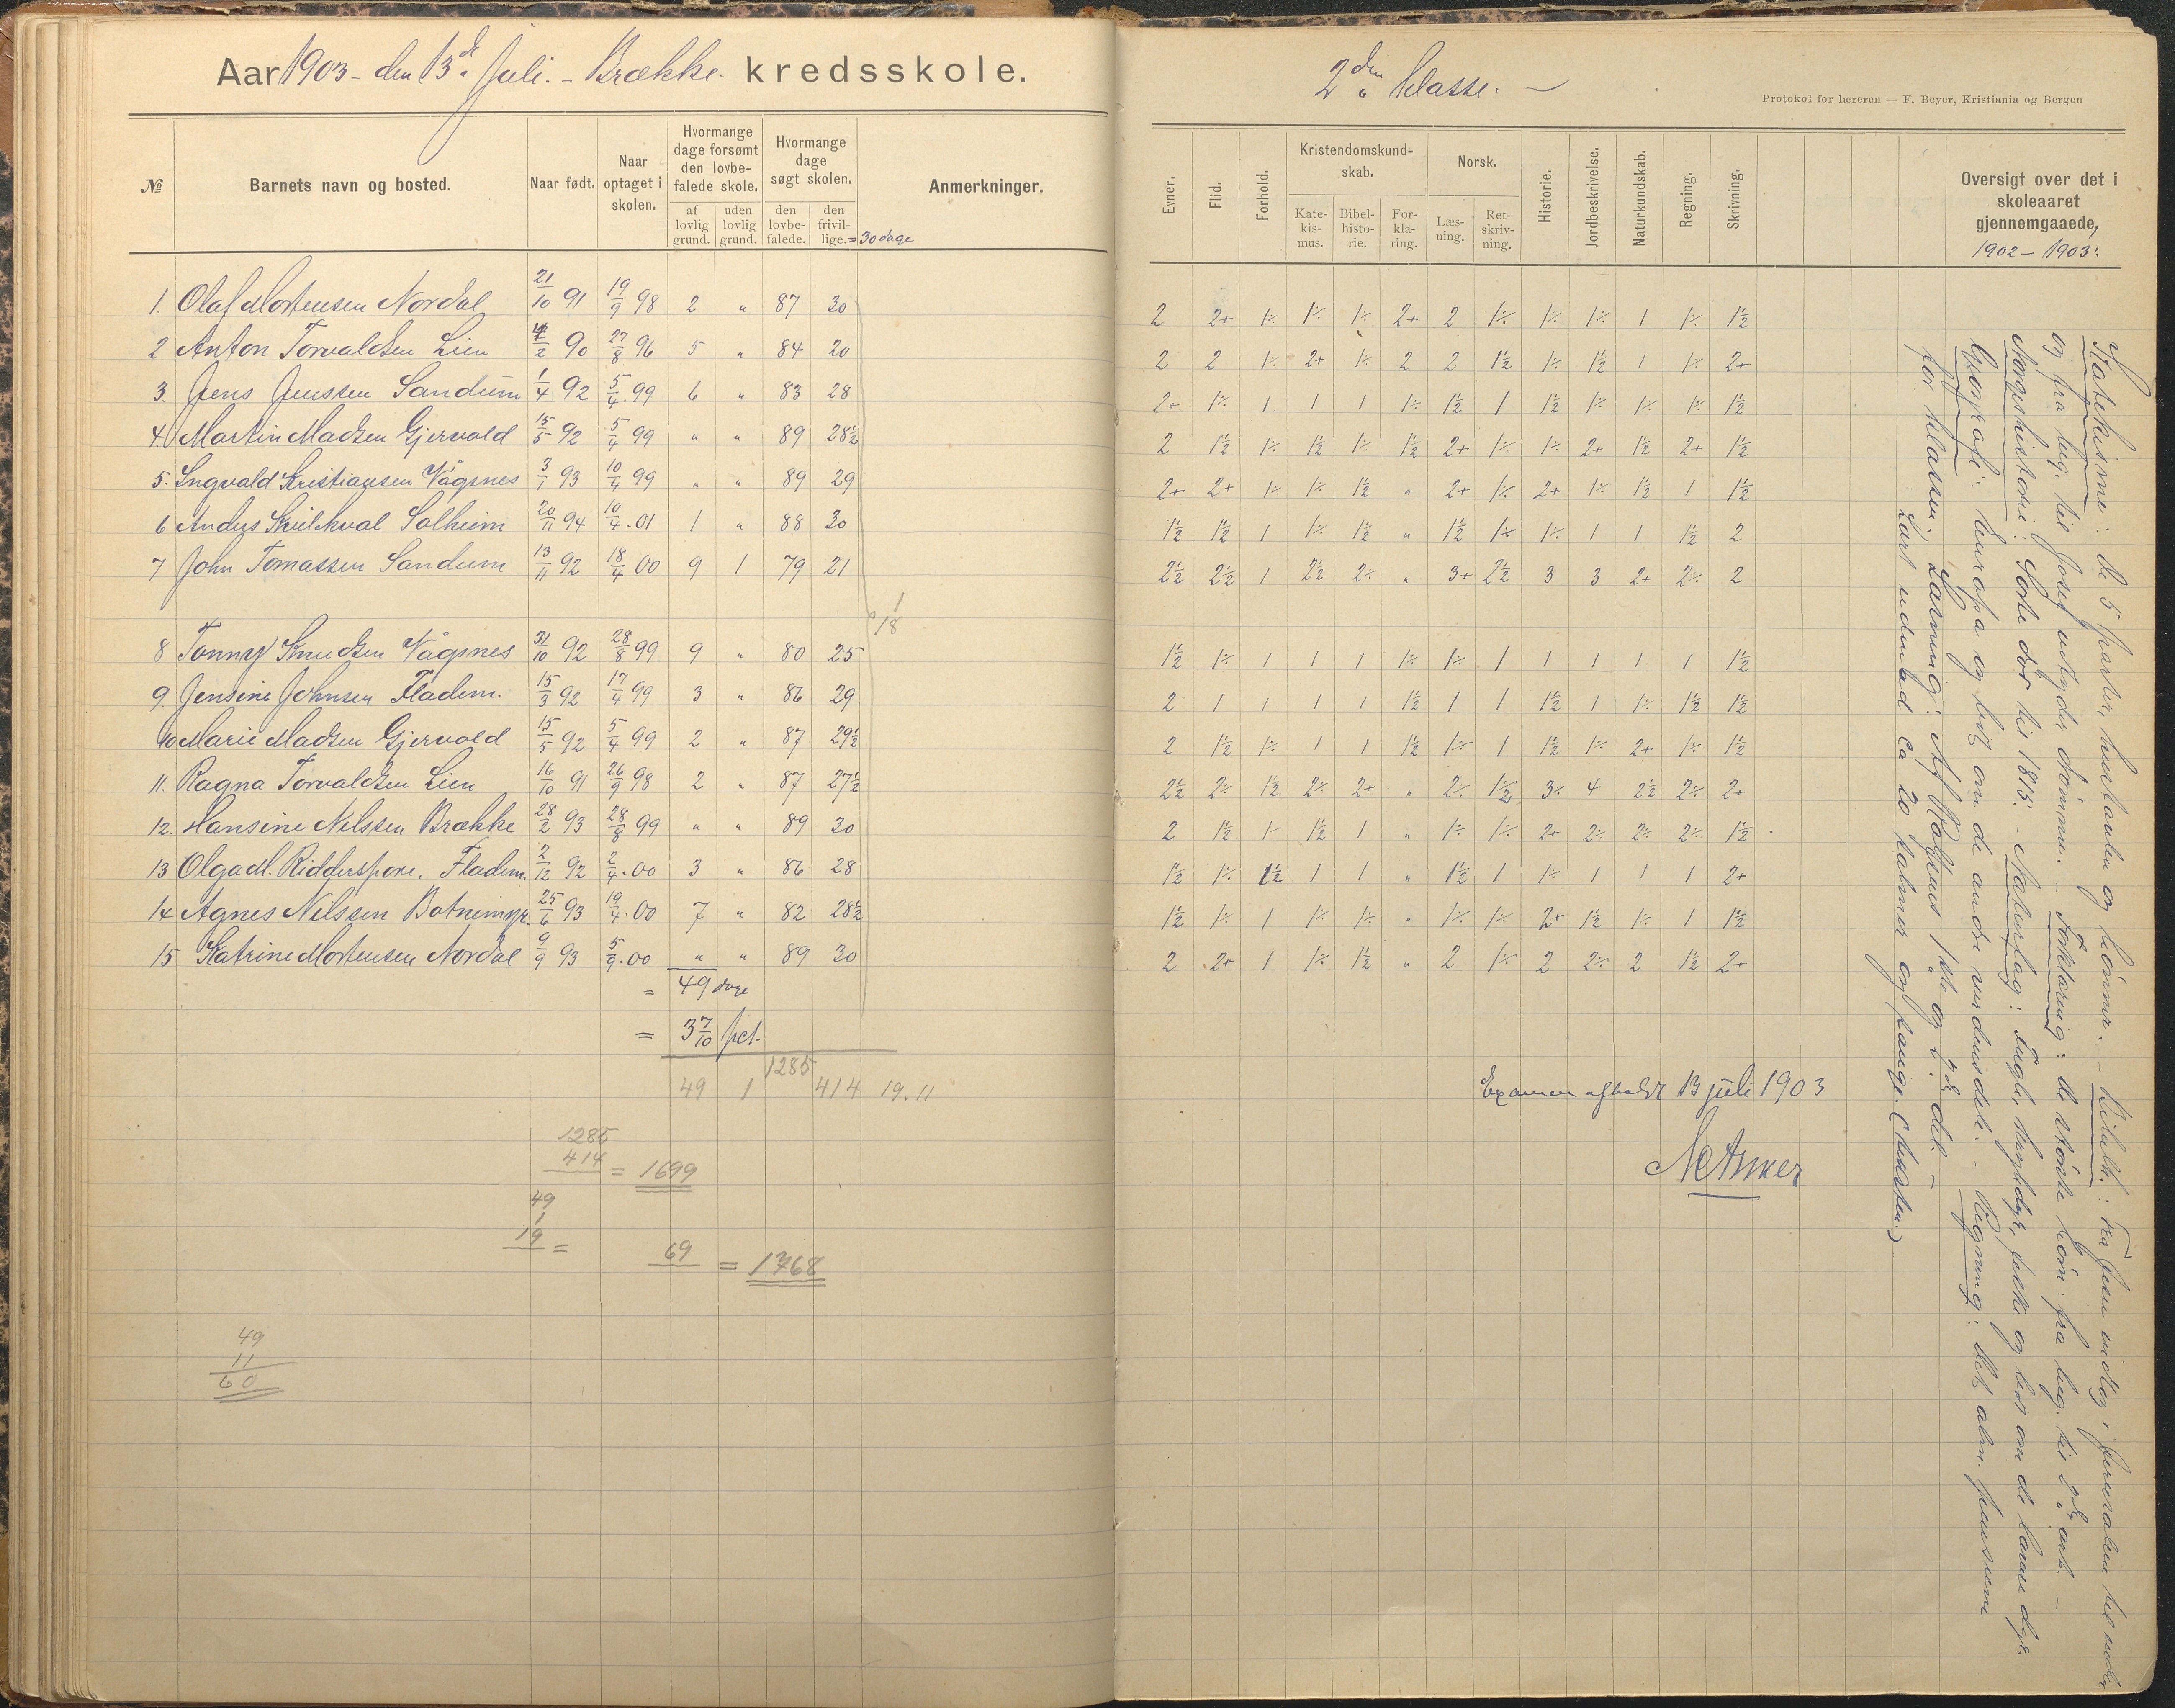 Aar 1903 - den 13de Juli. - Brække. kredsskole.
№ Barnets navn og bosted. Naar født. Naar optaget i skolen. Hvormange dage forsømt den lovbefalede skole. af lovlig grund. uden lovlig grund. Hvormange dage søgt skolen. den lovbefalede. den frivillige. = 30 dage Anmerkninger.
1. Olaf Mortensen Nordal 21/10 91 19/9 98 2 " 87 30
2 Anton Torvaldsen Lien 4/2 90 27/8 96 5 " 84 20
3. Jens Jenssen Sandum 1/4 92 5/4.99 6 " 83 28
4. Martin Madsen Gjervold 15/5 92 5/4 99 " " 89 28½
5. Ingvald Kristiansen Vågsnes 3/1 93 10/4 99 " " 89 29
6 Anders Solheim 20/11 94 10/4.01 1 " 88 30
7 John Tomassen Sandum 13/11 92 18/4 00 9 1 79 21
1
18
8 Tonny Knudsen Vågsnes 31/10 92 28/8 99 9 " 80 25
9. Jensine Johnsen Fladem. 15/3 92 17/4 99 3 " 86 29
10 Marie Madsen Gjervold 15/5 92 5/4 99 2 " 87 29½
11. Ragna Torvaldsen Lien 16/10 91 26/9 98 2 " 87 27½
12. Hansine Nilssen Brække 28/2 93 28/8 99 " " 89 30
13 Olga M. Ridderspore. Fladem. 2/12 92 2/4.00 3 " 86 28
14 Agnes Nilssen Botnemyr. 25/6 93 19/4.00 7 " 82 28½
15 Katrine Mortensen Nordal 9/9 93 5/9.00 " " 89 30
= 49 dage
= 3 7/10 pct.
1285
49 1 414 19.11
1285
414 = 1699
49
1
19 = 69 = 1768
49
11
60
2den klasse. -
Protokol for læreren — F. Beyer, Kristiania og Bergen
Evner. Flid. Forhold. Kristendomskundskab. Katekismus. Bibelhistorie. Forklaring. Norsk. Læsning. Retskrivning. Historie. Jordbeskrivelse. Naturkundskab. Regning. Skrivning. Oversigt over det i skoleaaret gjennemgaaede, 1902 - 1903:
2 2+ 1÷ 1÷ 1÷ 2+ 2 1÷ 1÷ 1÷ 1 1÷ 1½
2 2 1÷ 2+ 1÷ 2 2 1½ 1÷ 1½ 1 1÷ 2+
2+ 1÷ 1 1 1 1÷ 1½ 1 1½ 1÷ 1÷ 1÷ 1½
2 1½ 1÷ 1½ 1÷ 1½ 2+ 1÷ 1÷ 2+ 1½ 2+ 1½
2+ 2+ 1÷ 1÷ 1½ " 2+ 1÷ 2+ 1÷ 1½ 1 1½
1½ 1½ 1 1÷ 1½ " 1½ 1÷ 1÷ 1 1 1½ 2
2½ 2½ 1 2½ 2÷ " 3+ 2½ 3 3 2+ 2÷ 2
1½ 1÷ 1 1 1 1÷ 1÷ 1 1 1 1 1 1½
2 1 1 1 1 1½ 1 1 1½ 1 1÷ 1½ 1½
2 1½ 1÷ 1 1 1½ 1÷ 1 1½ 1÷ 2+ 1÷ 1½
2½ 2÷ 1½ 2÷ 2+ " 2÷ 1½ 3÷ 4 2½ 2÷ 2+
2 1½ 1- 1½ 1 " 1÷ 1÷ 2+ 2÷ 2÷ 2÷ 1½
1½ 1÷ 1½ 1 1 " 1½ 1 1÷ 1 1 1 2+
1½ 1÷ 1 1÷ 1÷ " 1÷ 1÷ 2+ 1½ 1÷ 1 1½
2 2+ 1 1÷ 1½ " 2 1÷ 2 2÷ 2 1½ 2+
Examen afholdt 13 juli 1903
Katekisme: de 5 parter, hustavlen og bønner. - Bibelh.: Fra Jesu indtog i Jerusalem til ende
og fra beg. til Josef udtyder drømme. - Forklaring: de større børn: fra beg. til 2den art. -
Norgeshistorie: Sorte død til 1815. - Naturfag: Fugle, krybdyr, fiske og lidt om de lavere dyr.
Geografi: Europa og lidt om de andre verdensdele. - Regning: det alm. pensum
for klassen. Læsning: Af Rolfsens 1ste og 2den del. -
Lært udenad ca 20 salmer og sange.